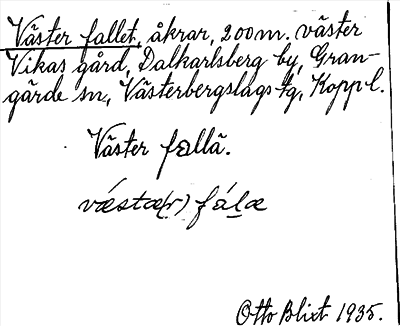 Väster fallet, åkrar, 200 m. väster
Vikas gård, Dalkarlsberg by, Gran-
gärde sn, Västerbergslags tg, Kopp l.
Väster fallä.
vǽstæ(r) fálæ
Otto Blixt 1935.